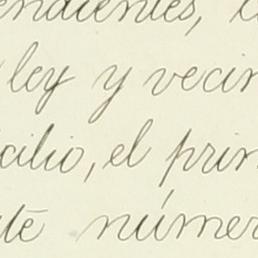 endientes,
ley y vecin
cilio, el prin
te númer